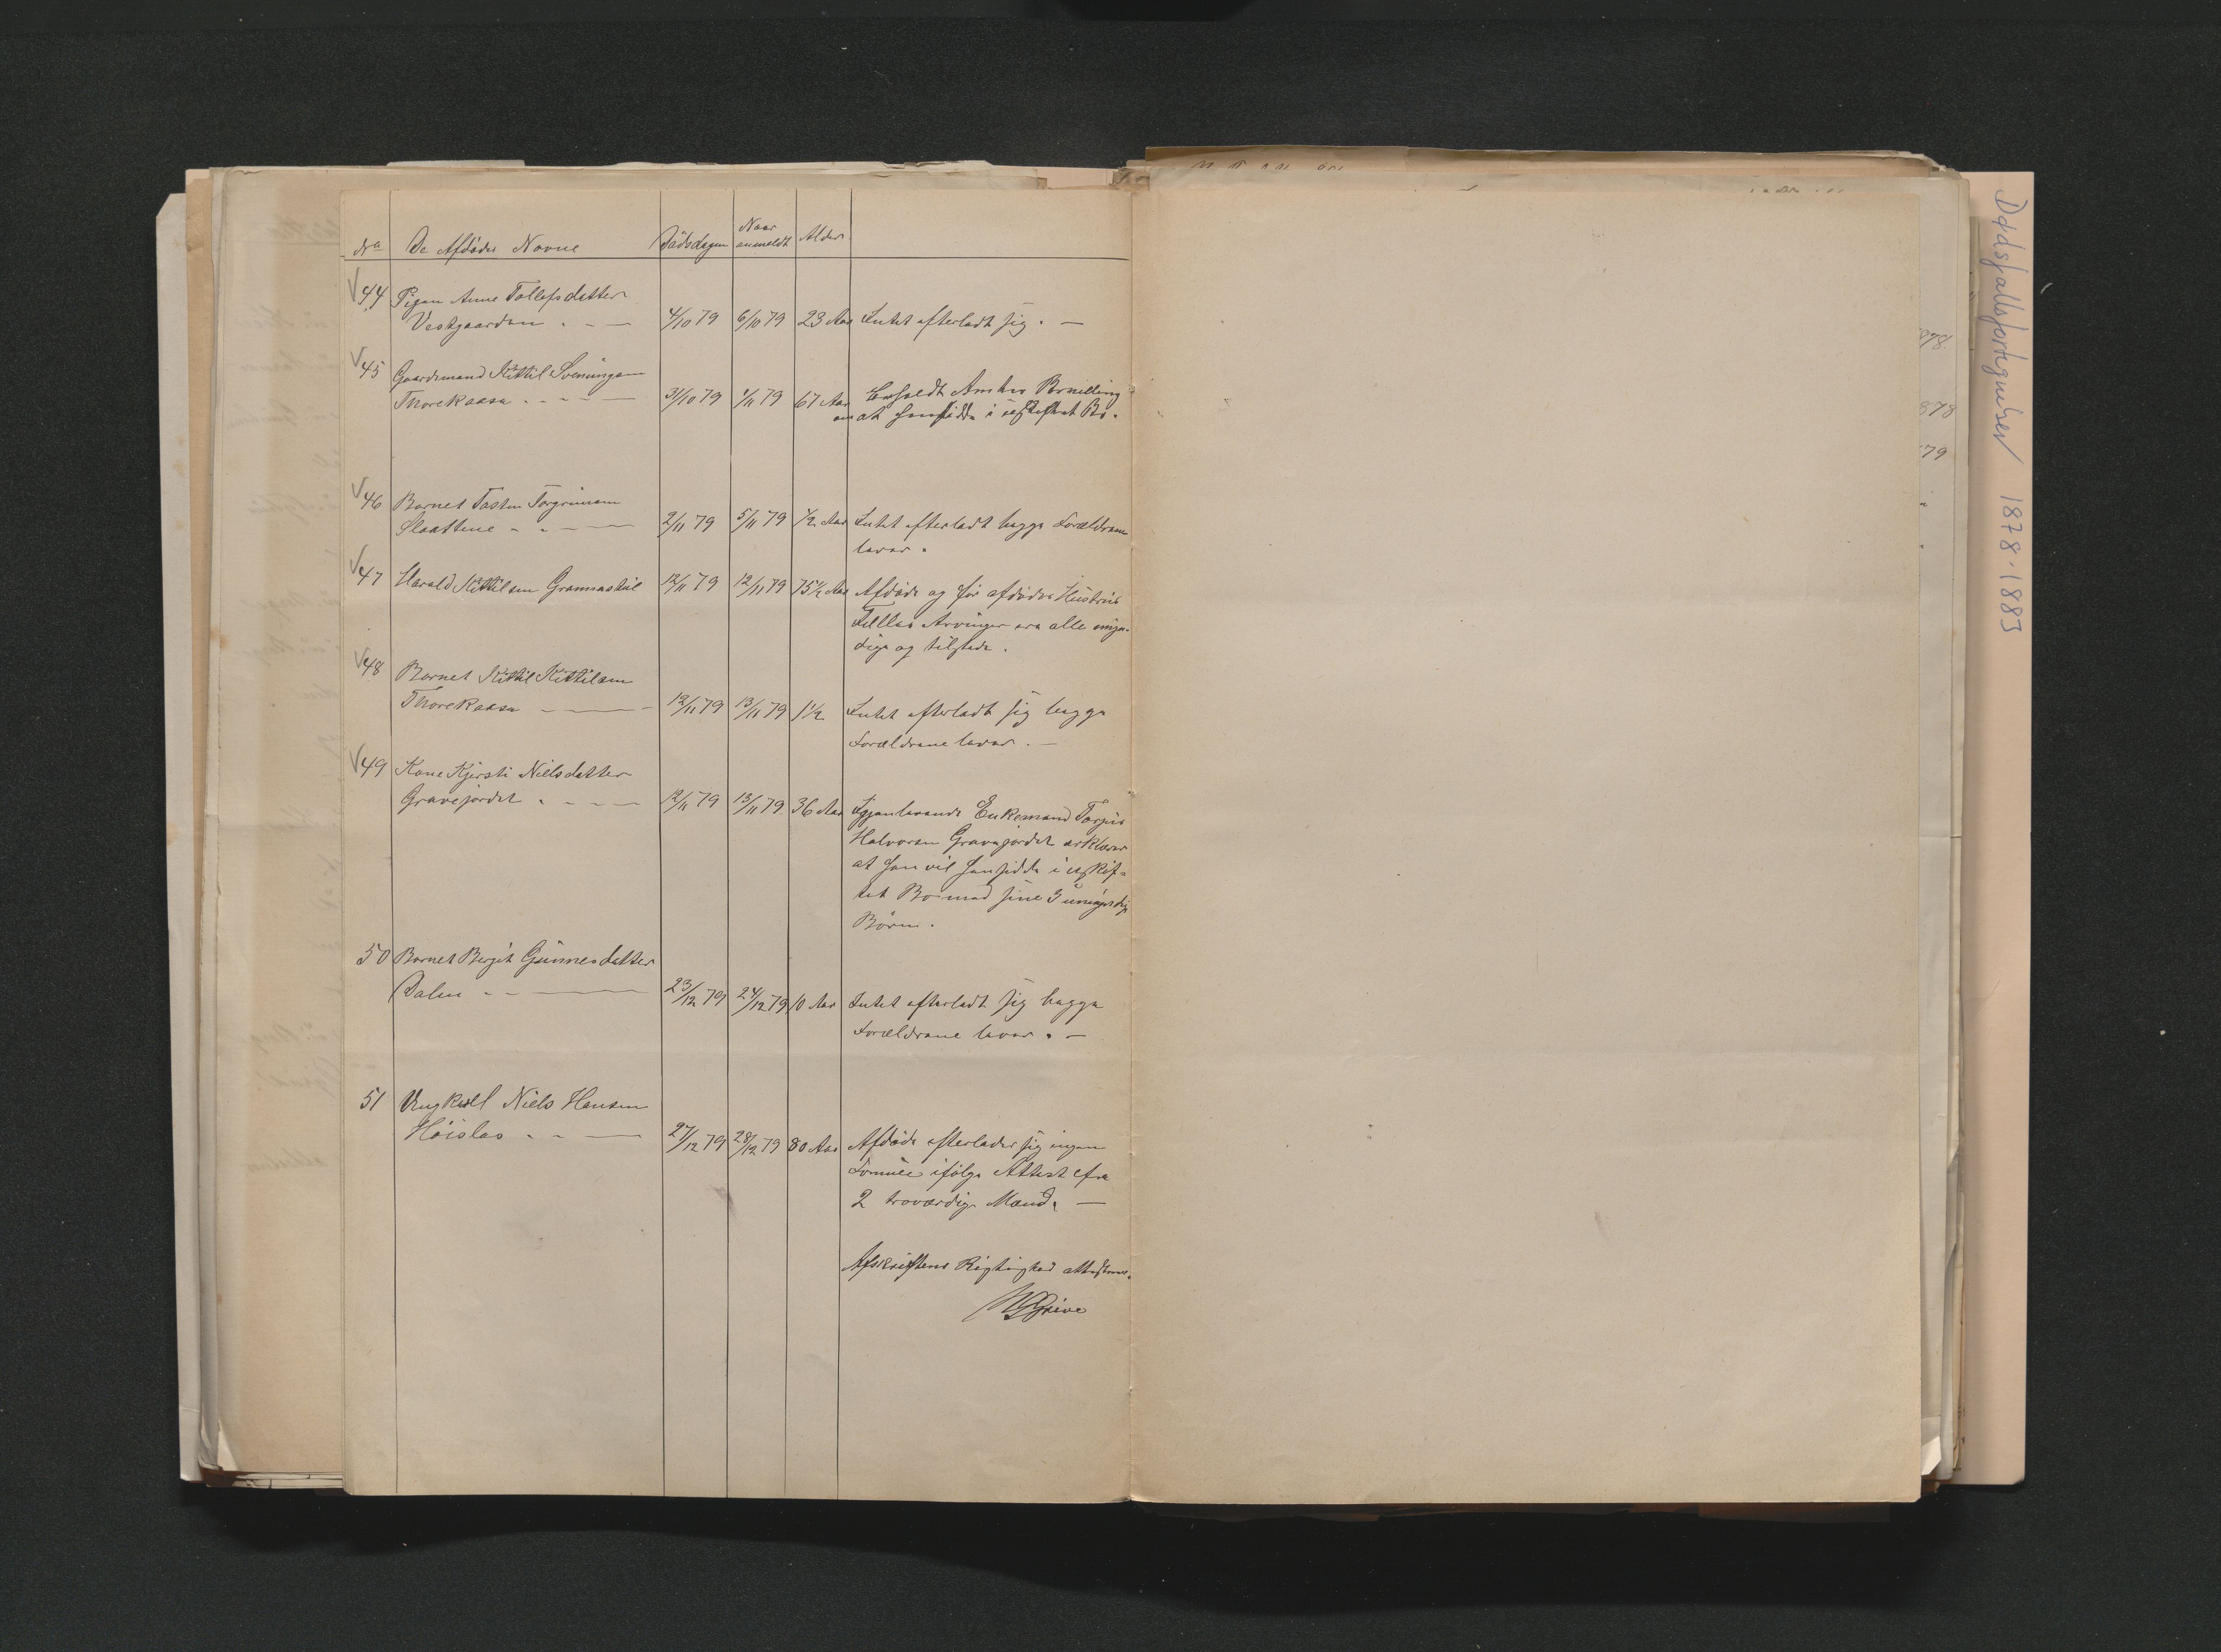 No De Afdødes Navne Dødsdagen Naar anmeldt Alder
44 Pigen Anne Tollefsdatter
Vestgaarden . - — 4/10 79 6/10 79 23 Aar Intet efterladt sig. —
45 Gaardmand Kittil Sveningsen
Thorekaasa . - - - — 31/10 79 1/11 79 67 Aar Erholdt Amtets Bevilling
om at hensidde i uskiftet Bo.
46 Barnet Torgrimsen
Slaattene - - — 2/11 79 5/11 79 1/2 Aar Intet efterladt begge Forældrene
lever.
47 Harald Kittilsen 12/11 79 12/11 79 75 1/2 Aar Afdøde og før afdødes Hustrus
Fælles Arvinger ere alle myn-
dige og tilstede.
48 Barnet Kittil Kittilsen
Thorekaasa — 12/11 79 13/11 79 1 1/2 Intet efterladt sig begge
Forældrene lever. —
49 Kone Kjersti Nielsdatter
Gravejordet . - - — 12/11 79 13/11 79 36 Aar Igjenlevende Enkemand Torjus
Halvorsen Gravejordet erklærer
at han vil hensidde i uskif-
tet Bo med sine 3 umyndige
Børn.
50 Barnet Bergit Gunnesdatter
Dalen - - — 23/12 79 24/12 79 10 Aar Intet efterladt sig begge
Forældrene lever. —
51 Ungkarl Niels Hansen
Høislas - - — 27/12 79 28/12 79 80 Aar Afdøde efterlader sig ingen
Formue ifølge Attest fra
2 troværdige Mænd. —
Afskriftens Rigtighed attesteres.
Dødsfallsfortegnelser 1878-1883
878.
878
79